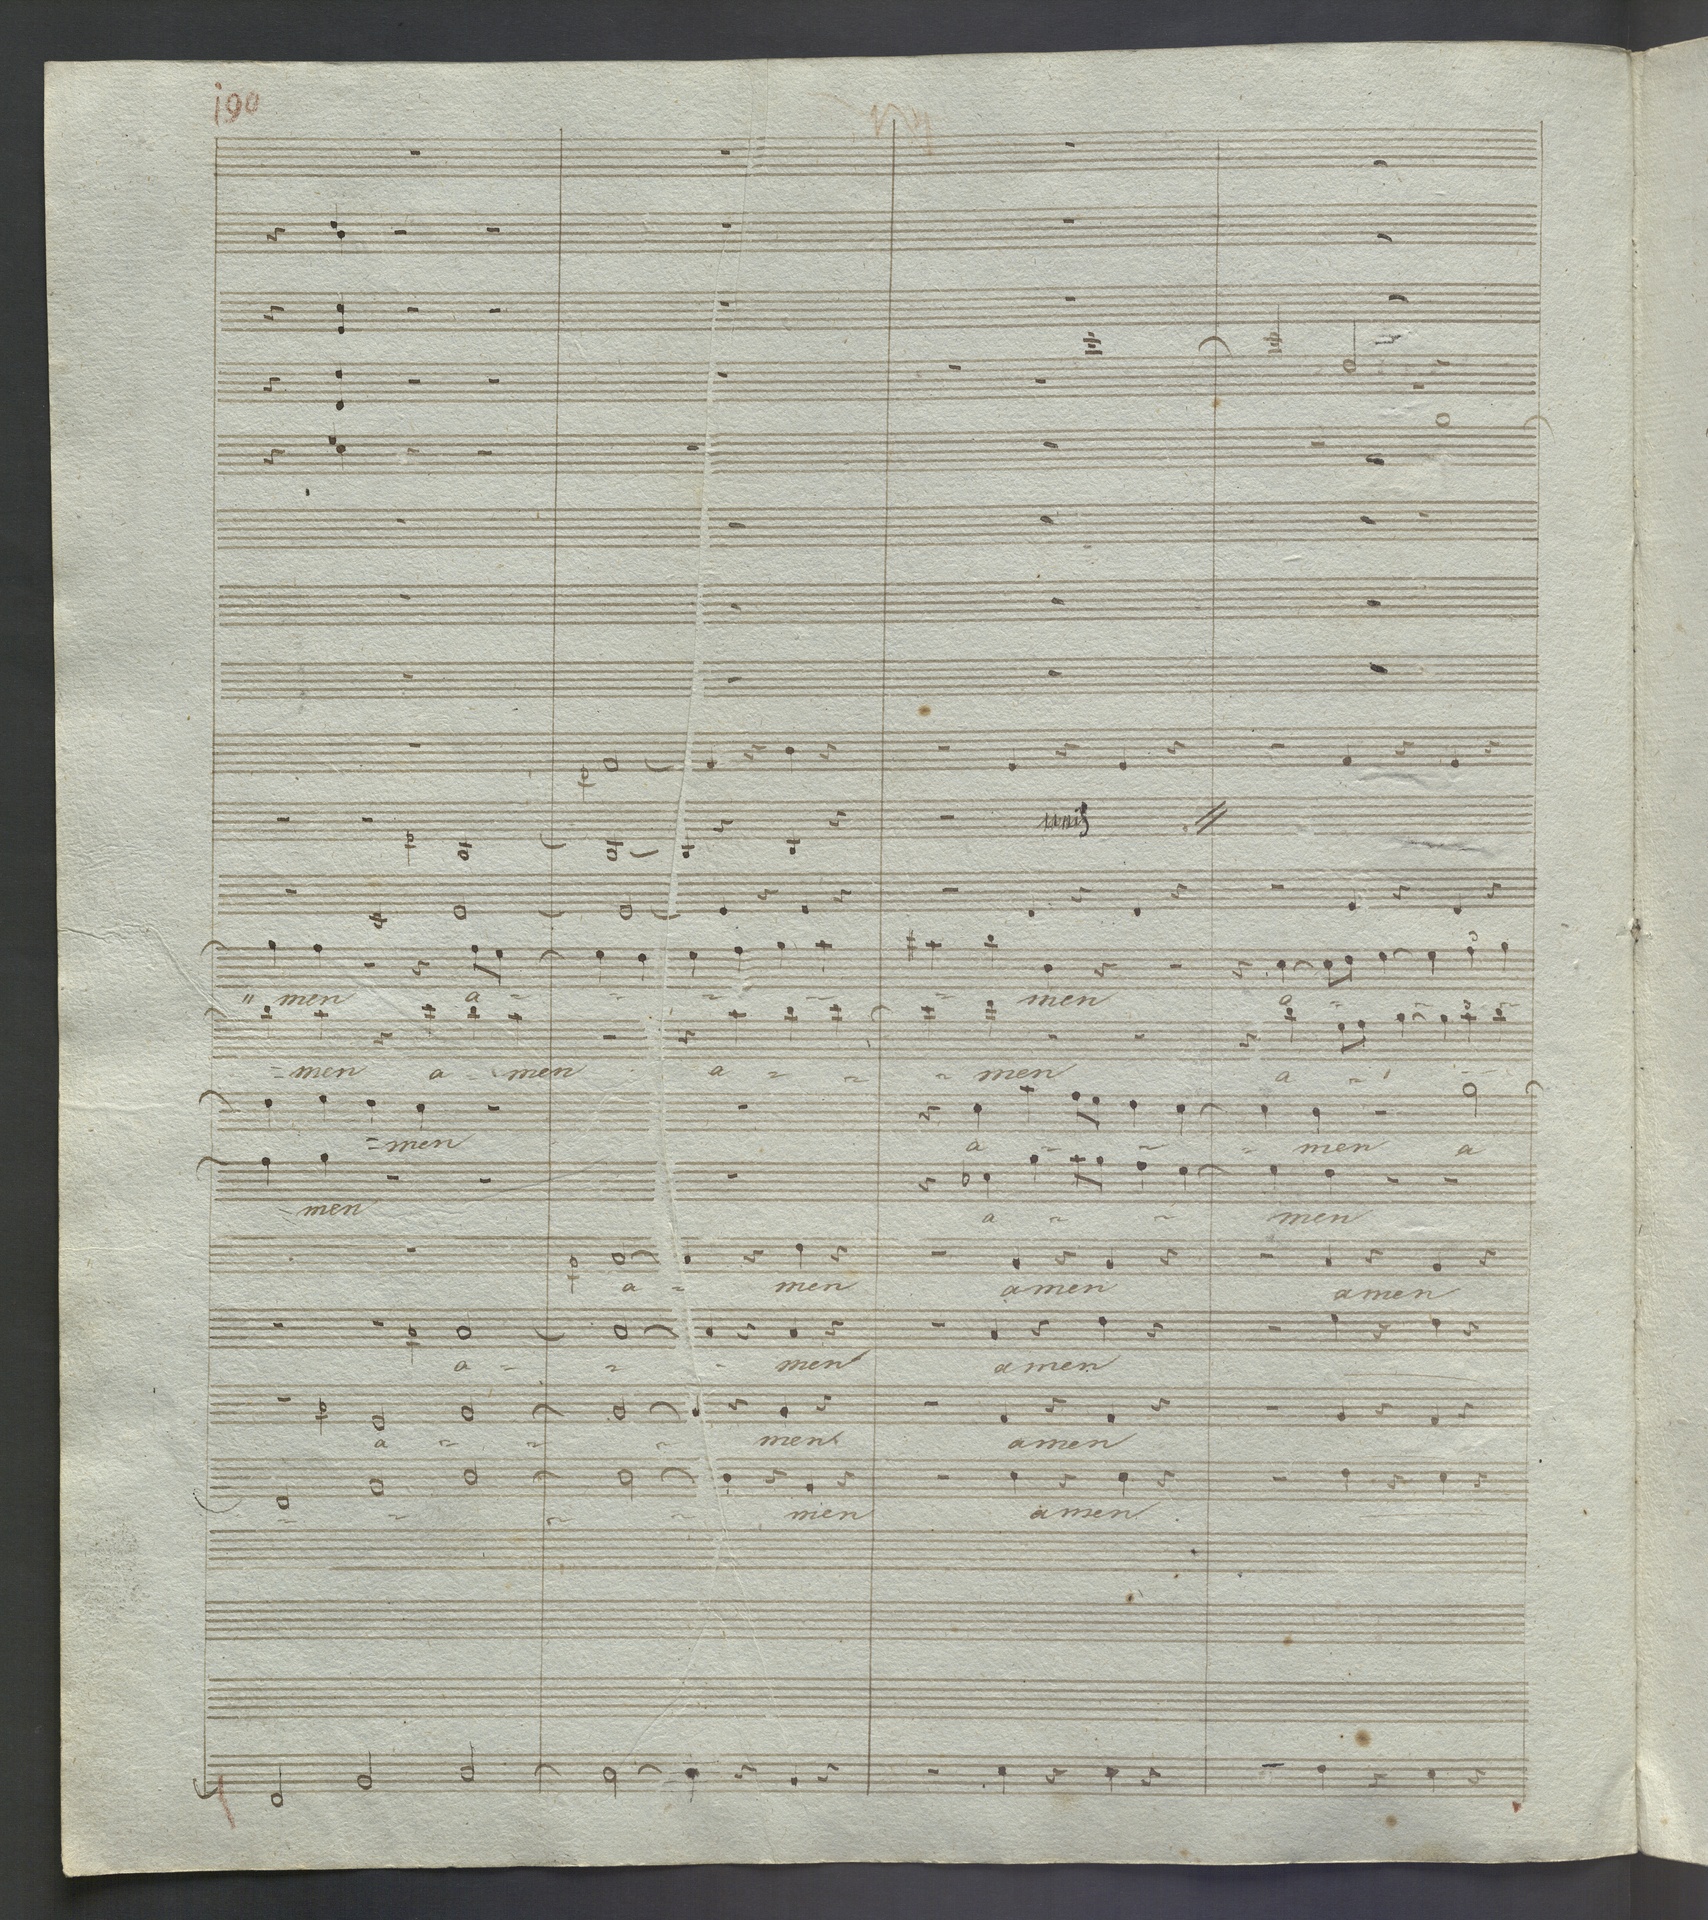 190
unis
" men a - - - - - men a -
- men a - men a - - - men a - -
- men a - - - men a
- men a - - men
a - men amen amen
a - - - men amen
a - - - men amen
- - - - men amen